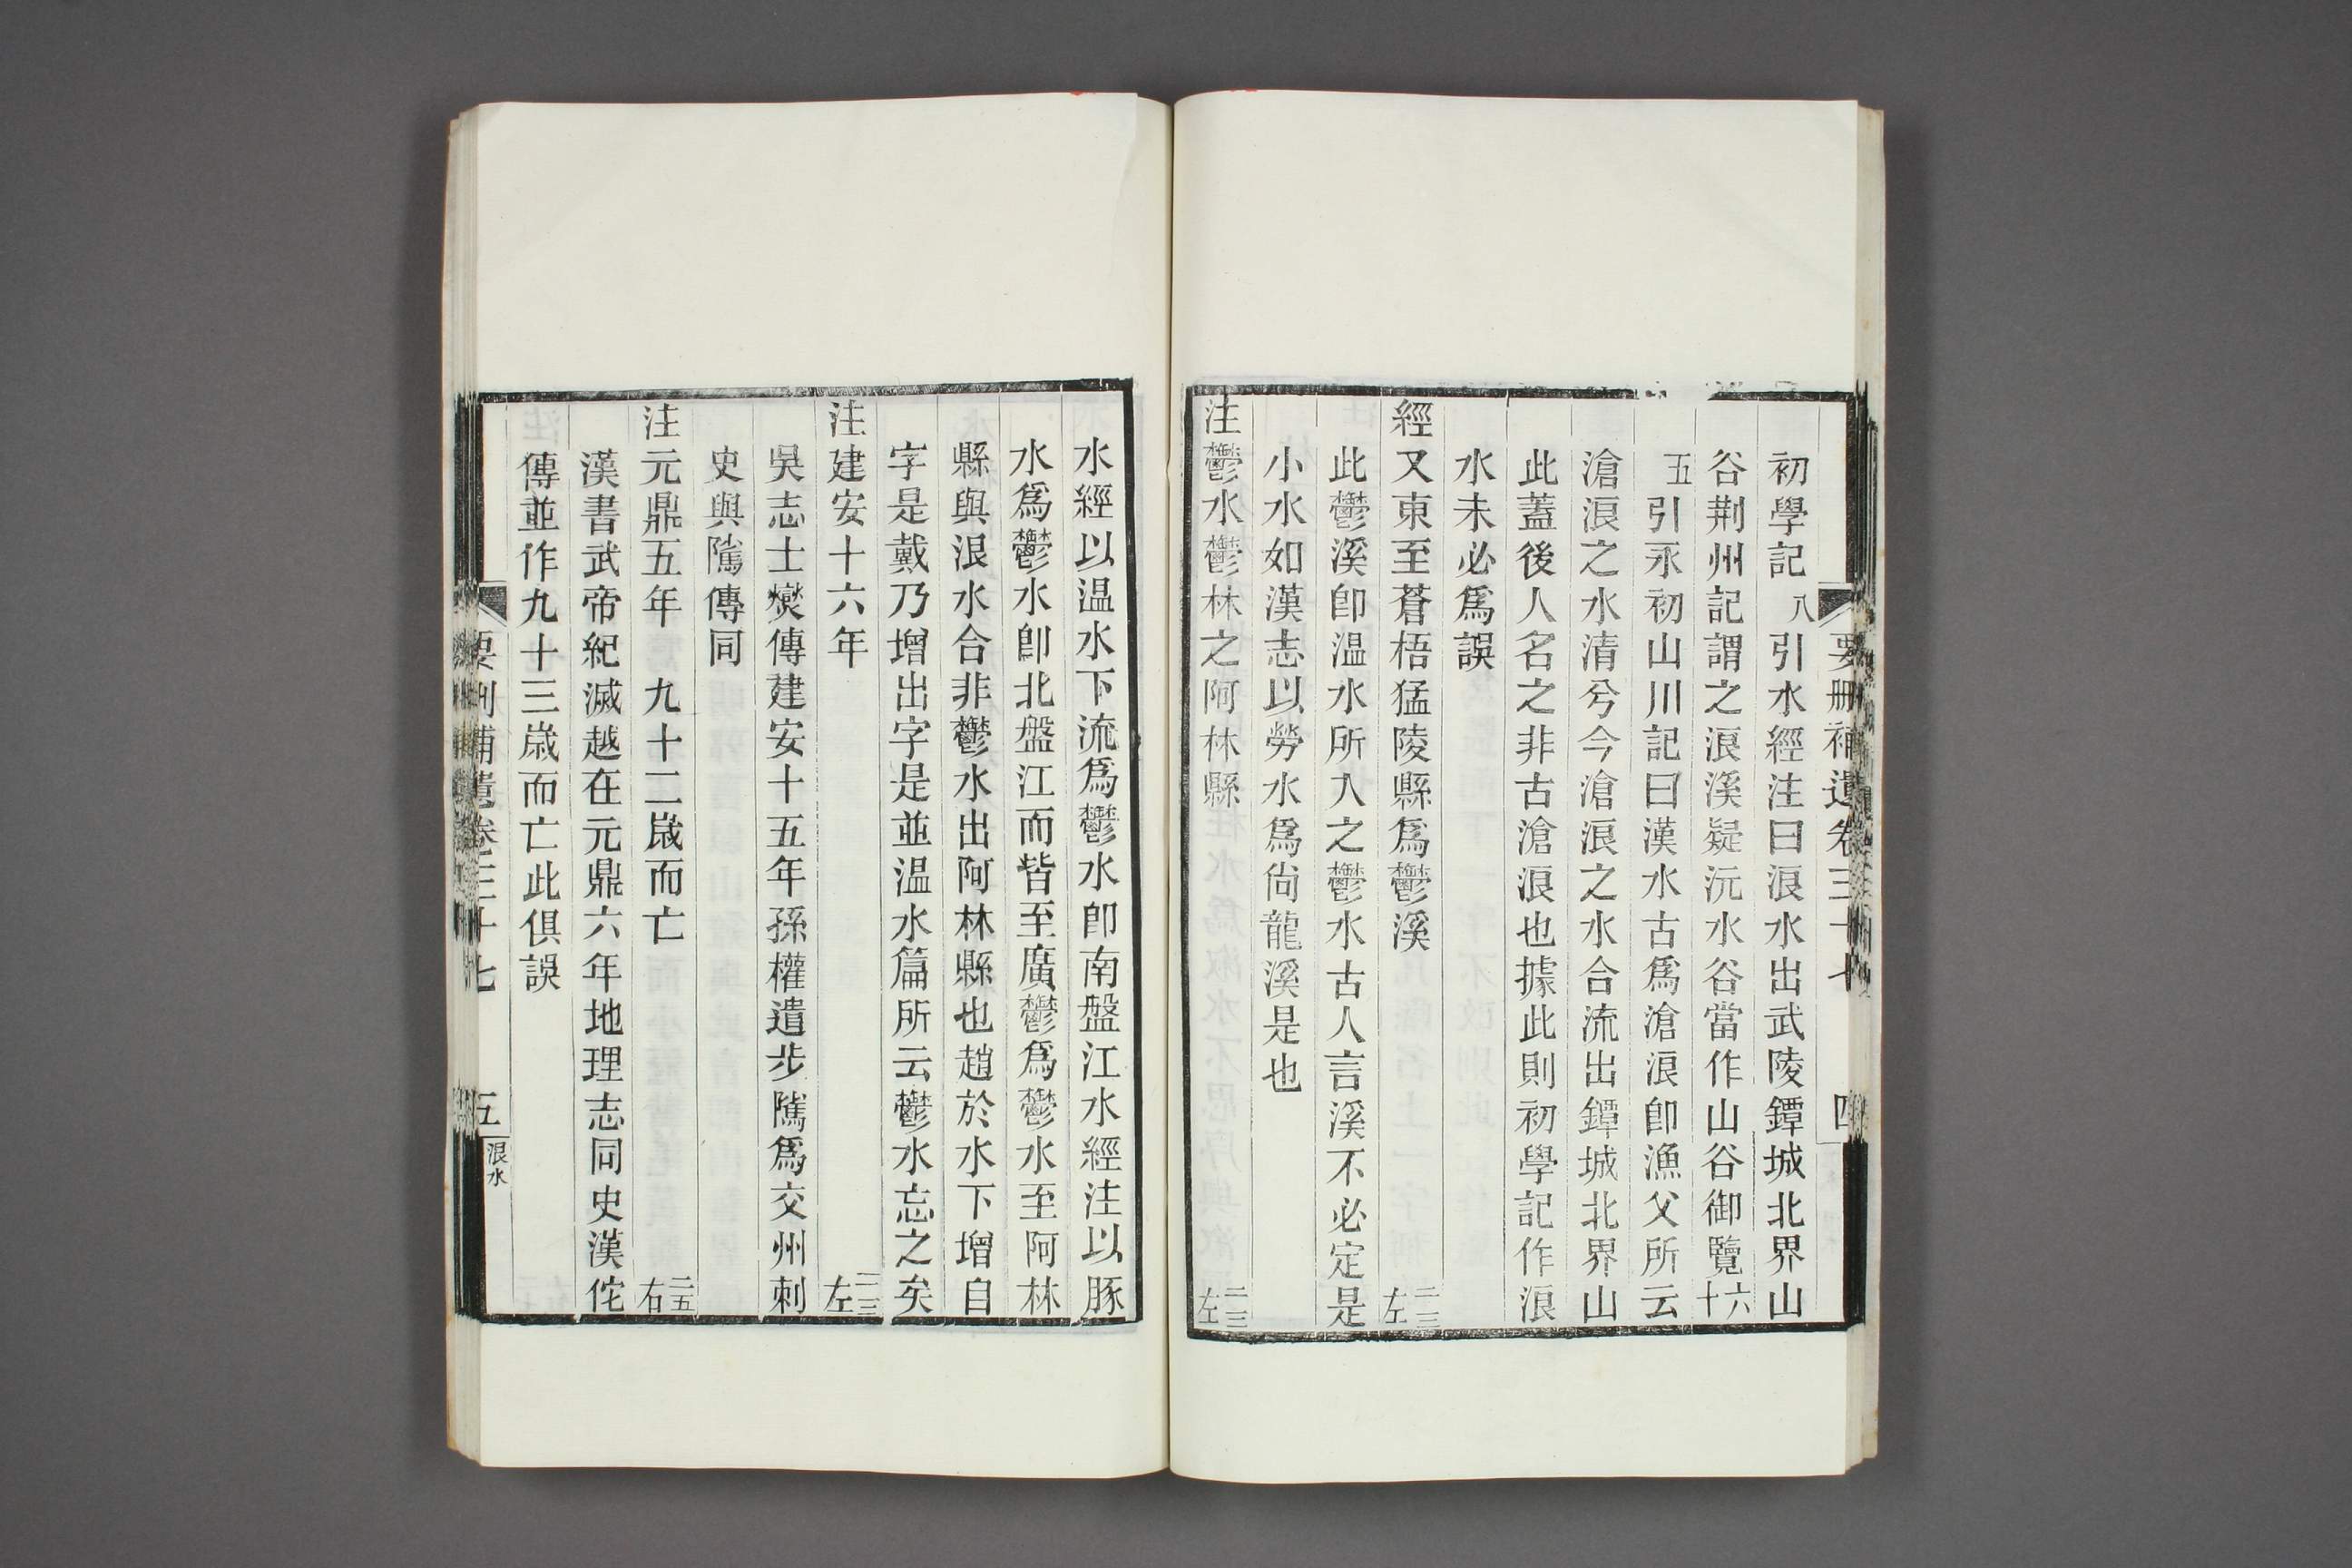 要刪補遺卷三十七 四
初學記八引水經注曰浪水出武陵鐔城北界山
谷荆州記謂之浪溪疑沅水谷當作山谷御覽六十
五引永初山川記曰漢水古爲滄浪卽漁父所云
滄浪之水清兮今滄浪之水合流出鐔城北界山
此蓋後人名之非古滄浪也據此則初學記作浪
水未必爲誤
經又東至蒼梧猛陵縣爲鬱溪 二三左
此鬱溪卽温水所入之鬱水古人言溪不必定是
小水如漢志以勞水爲尙龍溪是也
注鬱水鬱林之阿林縣 二三左
水經以温水下流爲鬱水卽南盤江水經注以豚
水爲鬱水卽北盤江而皆至廣鬱爲鬱水至阿林
縣與泿水合非鬱水出阿林縣也趙於水下增自
字是戴乃增出字是並温水篇所云鬱水忘之矣
注建安十六年 二三左
吳志士燮傳建安十五年孫權遣步隲爲交州刺
史與隲傳同
注元鼎五年 九十二歲而亡 二五右
漢書武帝紀滅越在元鼎六年地理志同史漢佗
傳並作九十三歲而亡此俱誤
要刪補遺卷三十七 五 泿水